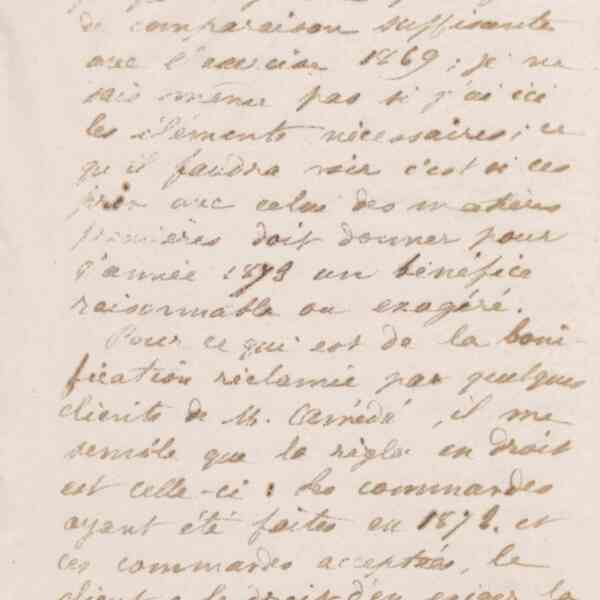 de comparaison suffisante
avec l'exercice 1869 ; je ne
sais même pas si j'ai ici
les éléments nécessaires ; ce
qu'il faudra voir c'est si ces
prix avec celui des matières
premières doit donner pour
l'année 1873 un bénéfice
raisonnable ou exagéré.
Pour ce qui est de la boni-
fication réclamée par quelques
clients de M. , il me
semble que la règle en droit
est celle-ci : les commandes
ayant été faites en 1872. et
ces commandes acceptées, le
client a le droit d'en exiger la